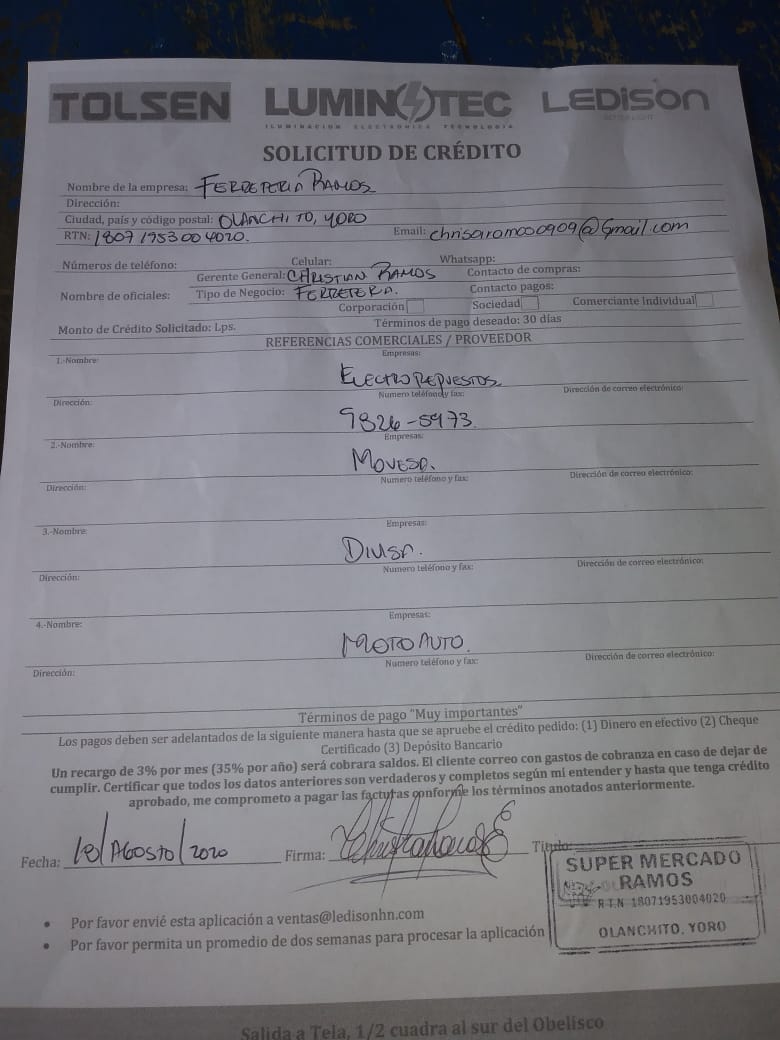 TOLSEN LUMINOTEC LEDiSON
ILUMINACION ELECTRONICA TECNOLOGIA
SOLICITUD DE CRÉDITO
Nombre de la empresa: FERRETERIA RAMOS
Dirección:
Ciudad, país y código postal: OLANCHITO, YORO
RTN: 18071953004020. Email: chrisaramos0909@Gmail.com
Números de teléfono: Celular: Whatsapp:
Gerente General: CHRISTIAN RAMOS Contacto de compras:
Nombre de oficiales: Tipo de Negocio: FERRETERA. Contacto pagos:
Corporación Sociedad Comerciante Individual
Monto de Crédito Solicitado: Lps. Términos de pago deseado: 30 días
REFERENCIAS COMERCIALES / PROVEEDOR
1.-Nombre: Empresas:
ELECTRO REPUESTOS
Dirección: Numero teléfono y fax: Dirección de correo electrónico:
9826-5973
2.-Nombre: Empresas:
MOVESA.
Dirección: Numero teléfono y fax: Dirección de correo electrónico:
3.-Nombre: Empresas:
DIUSA.
Dirección: Numero teléfono y fax: Dirección de correo electrónico:
4.-Nombre: Empresas:
MOTO AUTO.
Dirección: Numero teléfono y fax: Dirección de correo electrónico:
Términos de pago "Muy importantes"
Los pagos deben ser adelantados de la siguiente manera hasta que se apruebe el crédito pedido: (1) Dinero en efectivo (2) Cheque
Certificado (3) Depósito Bancario
Un recargo de 3% por mes (35% por año) será cobrara saldos. El cliente correo con gastos de cobranza en caso de dejar de
cumplir. Certificar que todos los datos anteriores son verdaderos y completos según mi entender y hasta que tenga crédito
aprobado, me comprometo a pagar las facturas conforme los términos anotados anteriormente.
Fecha: 18/AGOSTO/2020 Firma: Titulo:
SUPER MERCADO
RAMOS
R.T.N 18071953004020
OLANCHITO, YORO
• Por favor envié esta aplicación a ventas@ledisonhn.com
• Por favor permita un promedio de dos semanas para procesar la aplicación
Salida a Tela, 1/2 cuadra al sur del Obelisco